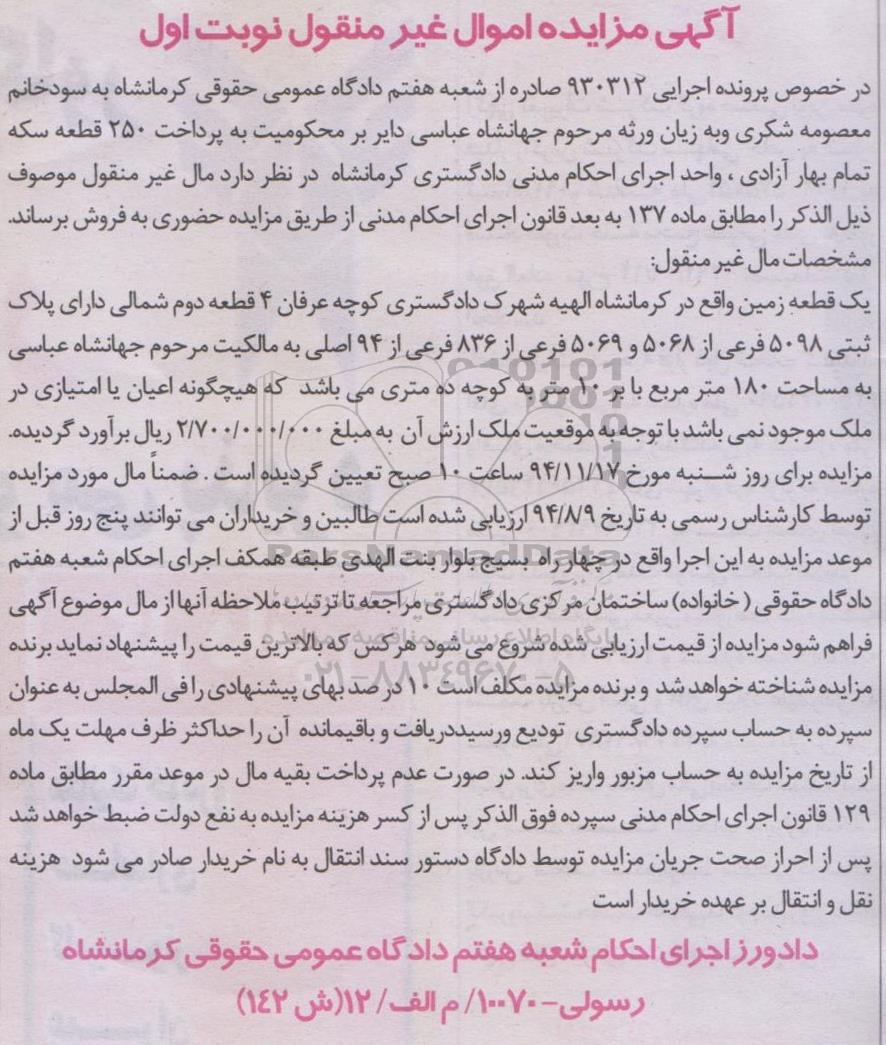 آگهی مزایده اموال غیر منقول نوبت اول
در خصوص پرونده اجرایی ۹۳۰۳۱۲ صادره از شعبه هفتم دادگاه عمومی حقوقی کرمانشاه به سودخانم
معصومه شکری وبه زیان ورثه مرحوم جهانشاه عباسی دایر بر محکومیت به پرداخت ۲۵۰ قطعه سکه
تمام بهار آزادی ، واحد اجرای احکام مدنی دادگستری کرمانشاه در نظر دارد مال غیر منقول موصوف
ذیل الذکر را مطابق ماده ۱۳۷ به بعد قانون اجرای احکام مدنی از طریق مزایده حضوری به فروش برساند.
مشخصات مال غیر منقول:
یک قطعه زمین واقع در کرمانشاه الهیه شهرک دادگستری کوچه عرفان ۴ قطعه دوم شمالی دارای پلاک
ثبتی ۵۰۹۸ فرعی از ۵۰۶۸ و ۵۰۶۹ فرعی از ۸۳۶ فرعی از ۹۴ اصلی به مالکیت مرحوم جهانشاه عباسی
به مساحت ۱۸۰ متر مربع با بر ۱۰ متر به کوچه ده متری می باشد که هیچگونه اعیان یا امتیازی در
ملک موجود نمی باشد با توجه به موقعیت ملک ارزش آن به مبلغ ۲/۷۰۰/۰۰۰/۰۰۰ ریال برآورد گردیده.
مزایده برای روز شنبه مورخ ۹۴/۱۱/۱۷ ساعت ۱۰ صبح تعیین گردیده است . ضمناً مال مورد مزایده
توسط کارشناس رسمی به تاریخ ۹۴/۸/۹ ارزیابی شده است طالبین و خریداران می توانند پنج روز قبل از
موعد مزایده به این اجرا واقع در چهار راه بسیج بلوار بنت الهدی طبقه همکف اجرای احکام شعبه هفتم
دادگاه حقوقی (خانواده) ساختمان مرکزی دادگستری مراجعه تا ترتیب ملاحظه آنها از مال موضوع آگهی
فراهم شود مزایده از قیمت ارزیابی شده شروع می شود هرکس که بالاترین قیمت را پیشنهاد نماید برنده
مزایده شناخته خواهد شد و برنده مزایده مکلف است ۱۰ در صد بهای پیشنهادی را فی المجلس به عنوان
سپرده به حساب سپرده دادگستری تودیع ورسیددریافت و باقیمانده آن را حداکثر ظرف مهلت یک ماه
از تاریخ مزایده به حساب مزبور واریز کند. در صورت عدم پرداخت بقیه مال در موعد مقرر مطابق ماده
۱۲۹ قانون اجرای احکام مدنی سپرده فوق الذکر پس از کسر هزینه مزایده به نفع دولت ضبط خواهد شد
پس از احراز صحت جریان مزایده توسط دادگاه دستور سند انتقال به نام خریدار صادر می شود هزینه
نقل و انتقال بر عهده خریدار است
دادورز اجرای احکام شعبه هفتم دادگاه عمومی حقوقی کرمانشاه
رسولی- ۱۰۰۷۰/ م الف/ ۱۲(ش ۱۴۲)
ParsNamadData
۰۲۱-۸۸۳۴۹۶۷۰-۵